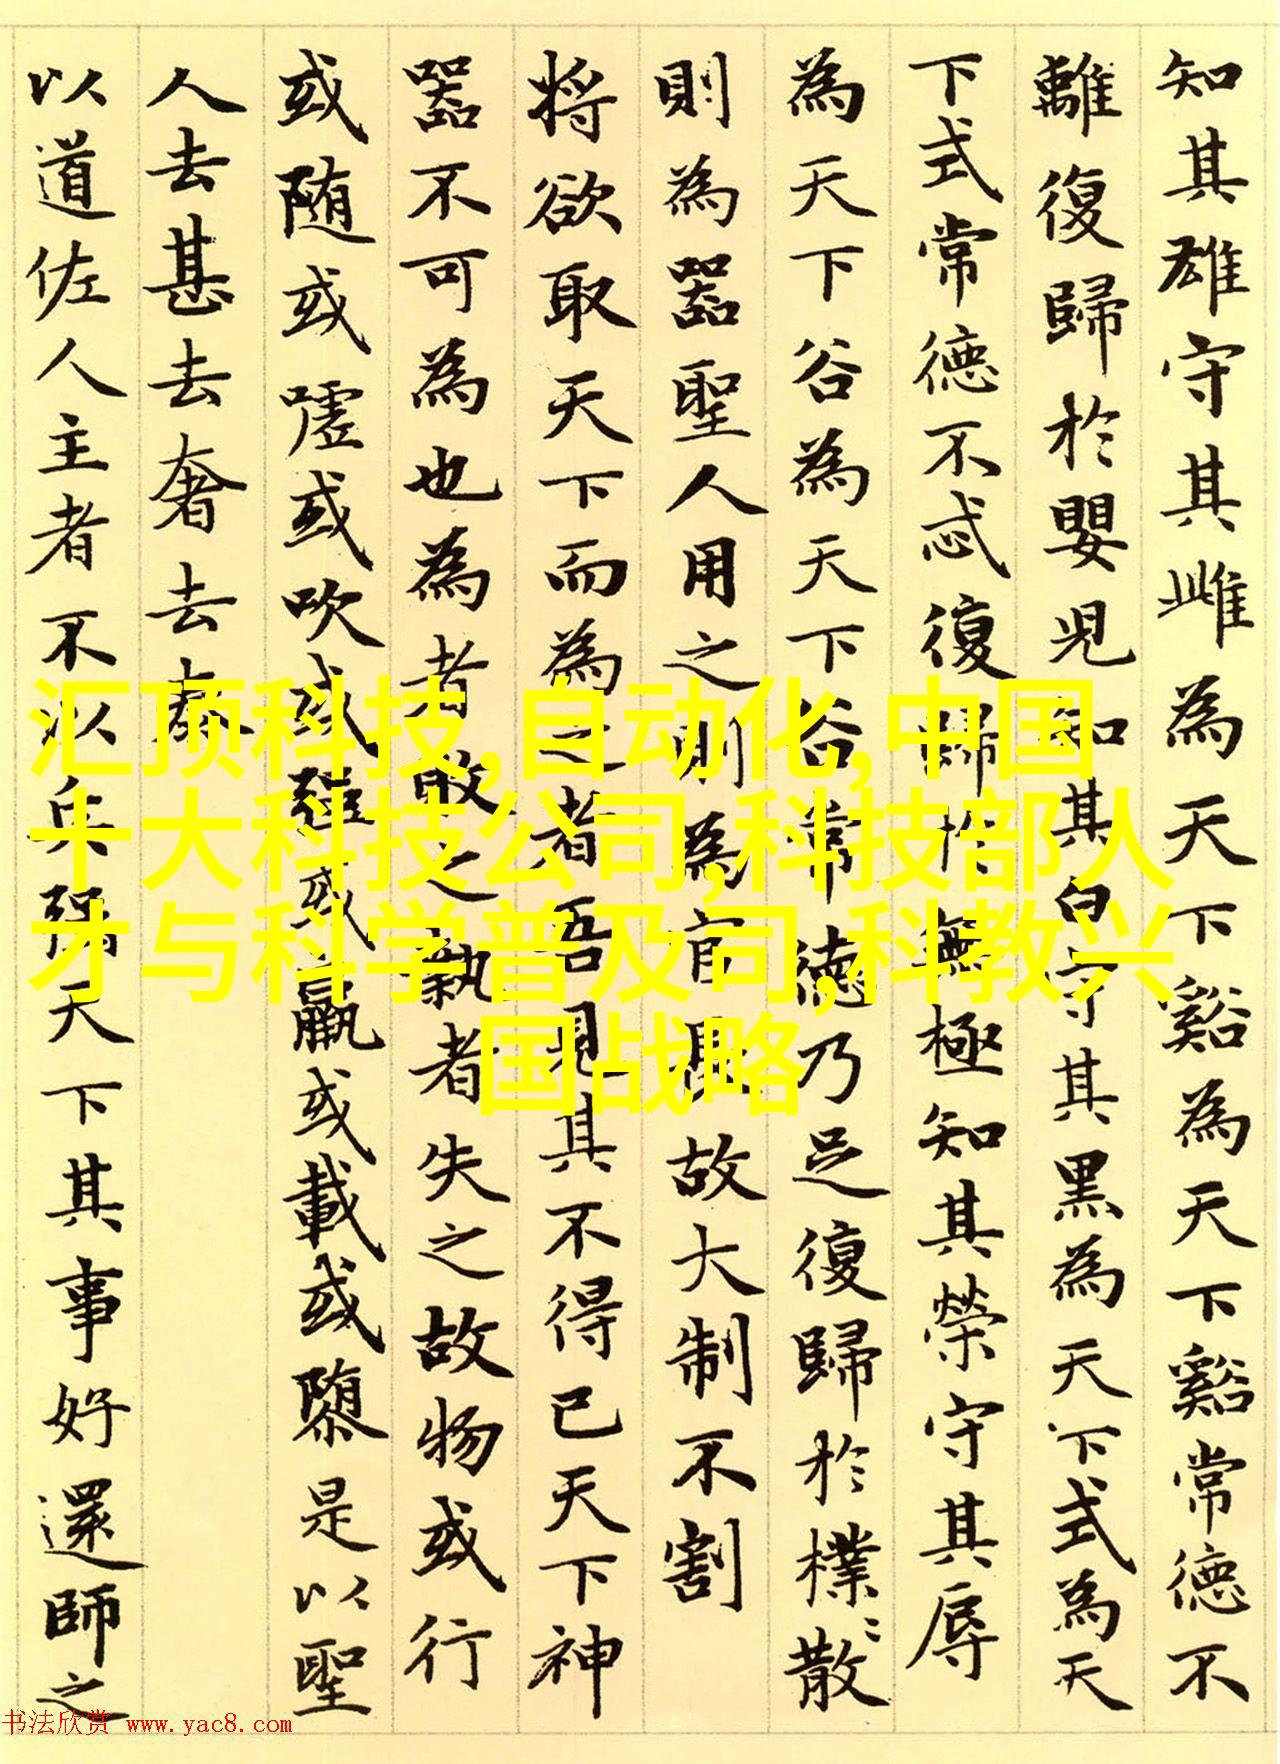 知其雄守其雌為天下谿為天下谿常德不
離復歸於嬰兒知其白守其黑為天下式為天
下式常德不忒復歸於無極知其榮守其辱
為天下谷為天下谷常德乃足復歸於樸〻散
則為器聖人用之則為官長故大制不割
将欲取天下而為之者吾見其不得已天下神
器不可為也為者敗之執者失之故物或行
或随或嘘或吹或强或羸或載或隳是以聖
人去甚去奢去泰
以道佐人主者不以兵强天下其事好還師之
汇顶科技,自动化,中国
十大科技公司,科技部人
才与科学普及司,科教兴
国战略
书法欣赏 www.yac8.com